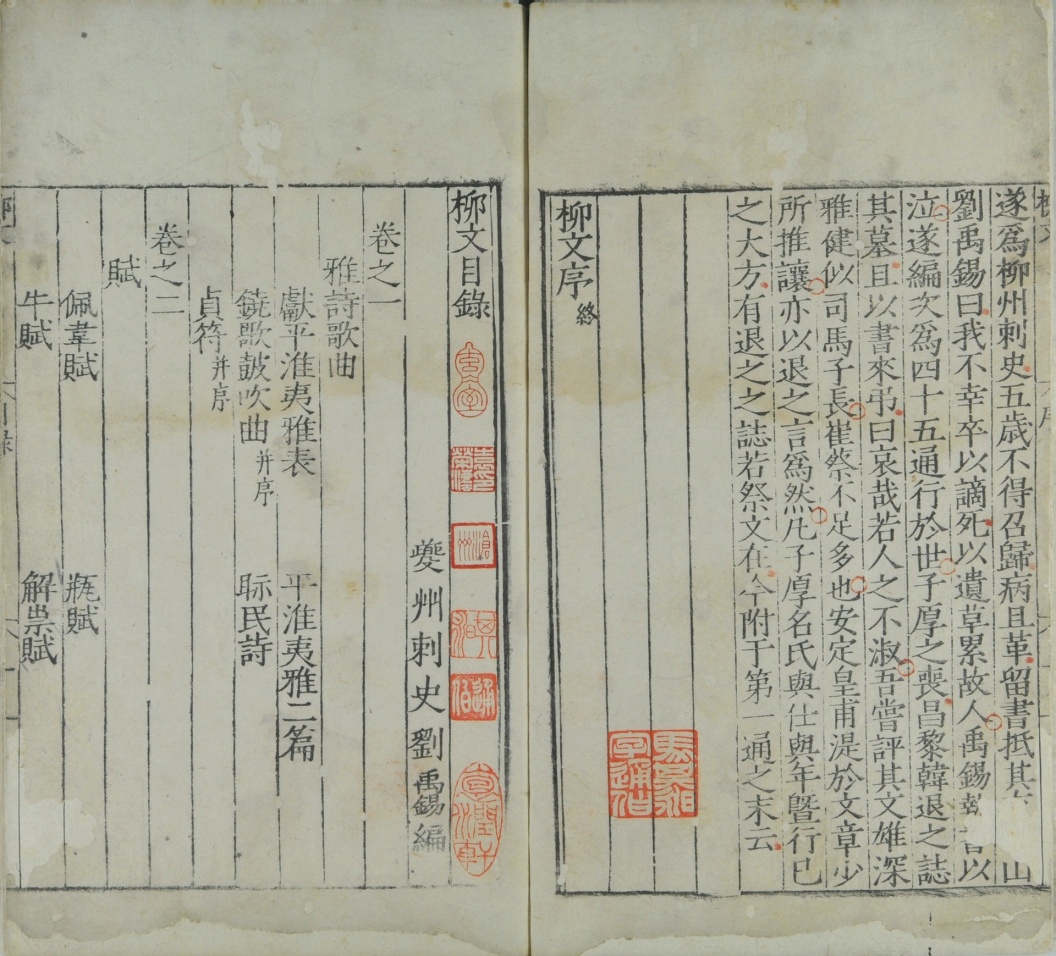 遂爲柳州刺史五歲不得召歸病且革留書抵其山
劉禹錫曰我不幸卒以謫死以遺草累故人禹錫執書以
泣遂編次爲四十五通行於世子厚之喪昌黎韓退之誌
其墓且以書來弔曰哀哉若人之不淑吾嘗評其文雄深
雅健似司馬子長崔蔡不足多也安定皇甫湜於文章少
所推讓亦以退之言爲然凢子厚名氏與仕與年曁行已
之大方有退之之誌若祭文在今附于第一通之末云
柳文序 終
柳文目錄
夔州刺史劉禹錫編
卷之一
雅詩歌曲
獻平淮夷雅表 平淮夷雅二篇
鐃歌鼓吹曲 并序 眎民詩
貞符 并序
卷之二
賦
佩韋賦 瓶賦
牛賦 解祟賦